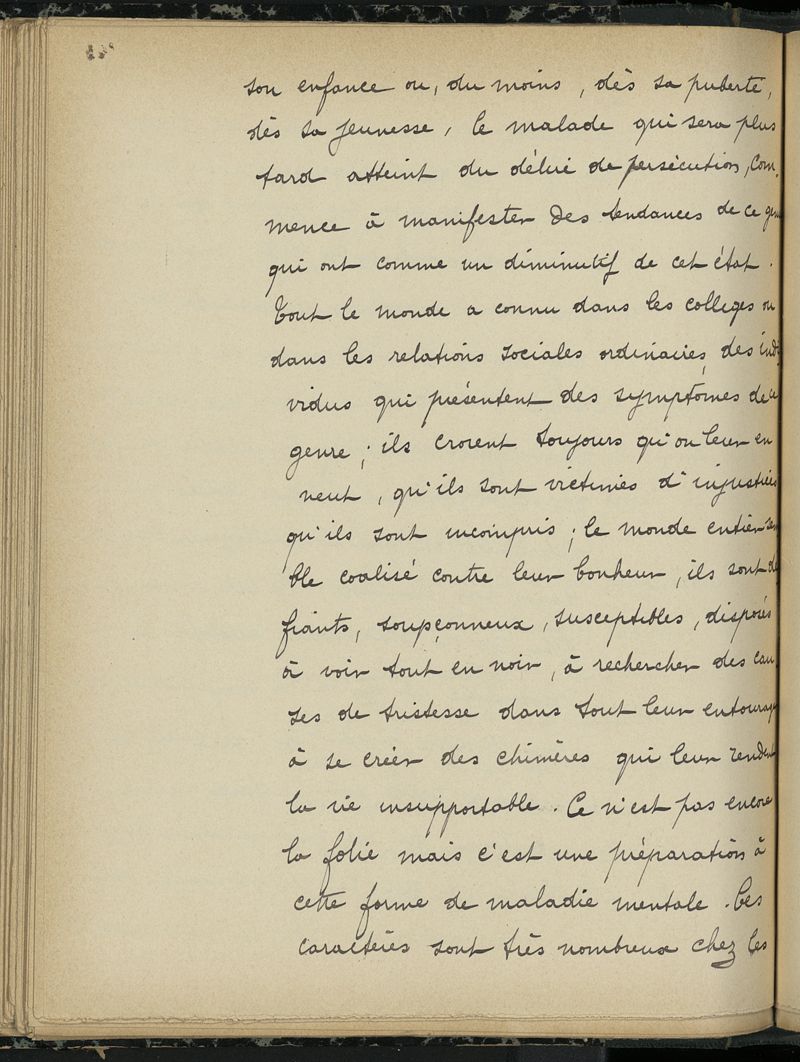 son enfance ou, du moins, dès sa puberté,
dès sa jeunesse, le malade qui sera plus
tard atteint du délire de persécution, com-
mence à manifester des tendances de ce gen
qui ont comme un diminutif de cet état.
Tout le monde a connu dans les collèges ou
dans les relations sociales ordinaires, des indi
vidus qui présentent des symptômes de ce
genre; ils croient toujours qu'on leur en
veut, qu'ils sont victimes d'injustices
qu'ils sont incompris; le monde entier sem
ble coalisé contre leur bonheur, ils sont dé
fiants, soupçonneux, susceptibles, disposés
à voir tout en noir, à rechercher des cau
ses de tristesse dans tout leur entourage
à se créer des chimères qui leur rendent
la vie insupportable. Ce n'est pas encore
la folie mais c'est une préparation à
cette forme de maladie mentale. Ces
caractères sont très nombreux chez les